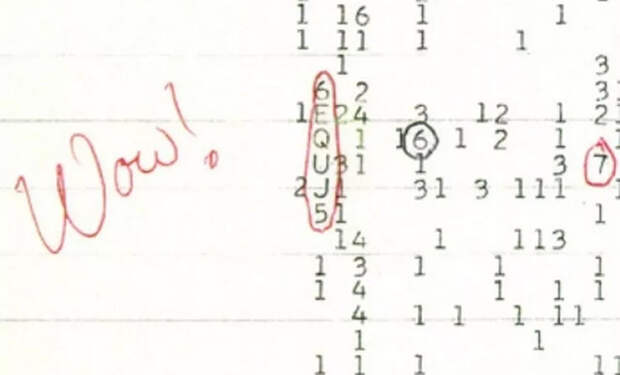 1 16 1 1
1 11 1 1
1 3
6 2 3
1 E 24 3 12 1 2
Q 1 16 1 2 1 1
Wow! U 31 1 3 7
2 J 1 31 3 111 1
5 1 1
14 1 113
1 3 1 1 1
1 4 1 1 1
4 1 1 1 11
1 1
1 1 1 11